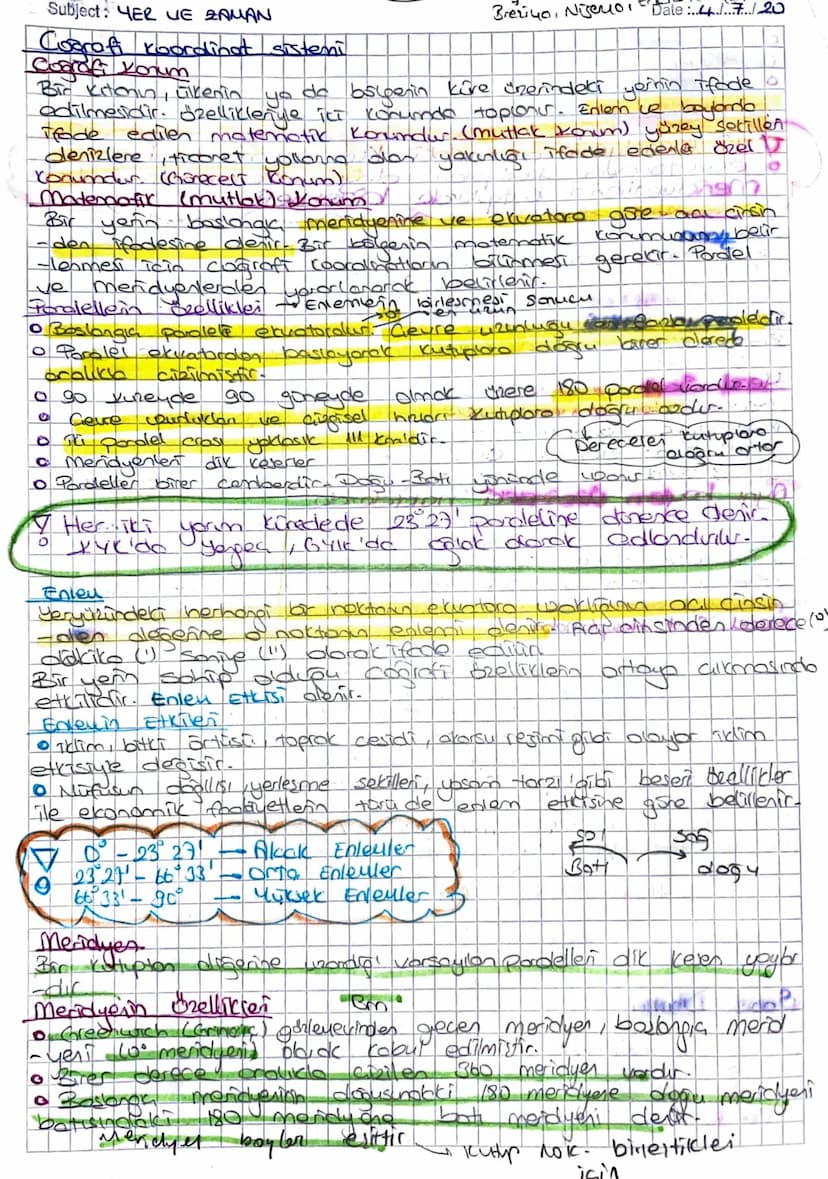 Subject: YER VE ZAMAN
Date: 4/7/20
Coğrafi koordinat sistemi
Coğrafi Konum
Bir kıtanın, ülkenin ya da bölgenin küre üzerindeki yerinin ifade
edilmesidir. Özellikleriyle iki konumda toplanır. Enlem ve boylamla
ifade edilen matematik konumdur. (mutlak konum) yüzey şekilleri
denizlere, ticaret yollarına olan yakınlığı ifade edende özel
konumdur. (Göreceli Konum)
Matematik (mutlak) Konum
Bir yerin başlangıç meridyenine ve ekvatora göre açı cinsin
-den ifadesine denir. Bir bölgenin matematik konumunun belir
-lenmesi için coğrafi koordinatların bilinmesi gerekir. Paralel
ve meridyenlerden yararlanarak belirlenir.
Paralellerin Özellikleri → Enlemlerin birleşmesi sonucu
en uzun
Başlangıç paraleli ekvatordur. Çevre uzunluğu paraleldir.
Paralel ekvatordan başlayarak kutuplara doğru birer derece
aralıkla çizilmiştir.
90 kuzeyde 90 güneyde olmak üzere 180 paralel vardır.
Çevre uzunlukları ve çizgisel hızları kutuplara doğru azdır.
İki paralel arası yaklaşık 111 km'dir.
Dereceleri kutuplara
doğru artar
Meridyenleri dik keserler
Paraleller birer çemberdir. Doğu-Batı yönünde uzanır.
Her iki yarım kürede de 23°27' paraleline dönence denir.
KYK'da Yengeç, GYK'da oğlak olarak adlandırılır.
Enlem
Yeryüzündeki herhangi bir noktanın ekvatora uzaklığının açı cinsin
-den değerine o noktanın enlemi denir. Açı cinsinden derece (°)
dakika (') saniye (") olarak ifade edilir.
Bir yerin sahip olduğu coğrafi özelliklerin ortaya çıkmasında
etkilidir. Enlem Etkisi denir.
Enlemin Etkileri
İklim, bitki örtüsü, toprak çeşidi, akarsu rejimi gibi olaylar iklim
etkisiyle değişir.
Nüfusun dağılışı, yerleşme şekilleri, yaşam tarzı gibi beşeri özellikler
ile ekonomik faaliyetlerin türü de enlem etkisine göre belirlenir.
0° - 23° 27' → Alçak Enlemler
23° 27' - 66° 33' → Orta Enlemler
66° 33' - 90° → Yüksek Enlemler
sol sağ
Batı doğu
Meridyen
Bir kutuptan diğerine uzandığı varsayılan paralelleri dik kesen yaydır
-dır
Meridyenin Özellikleri
Greenwich (Grinwiç) gözlemevinden geçen meridyen, başlangıç merid
-yeni (0° meridyeni) olarak kabul edilmiştir.
Birer derece aralıkla çizilen 360 meridyen vardır.
Başlangıç meridyeninin doğusundaki 180 meridyene doğu meridyeni
batısındaki 180 meridyene batı meridyeni denir.
Meridyen boyları eşittir → Kutup nok. birleştikleri
için